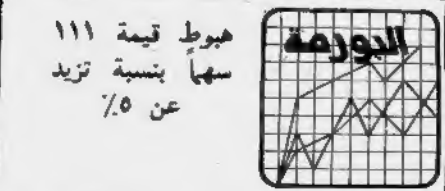 البورصة
هبوط قيمة ١١١
سهماً بنسبة تزيد
عن ٥٪